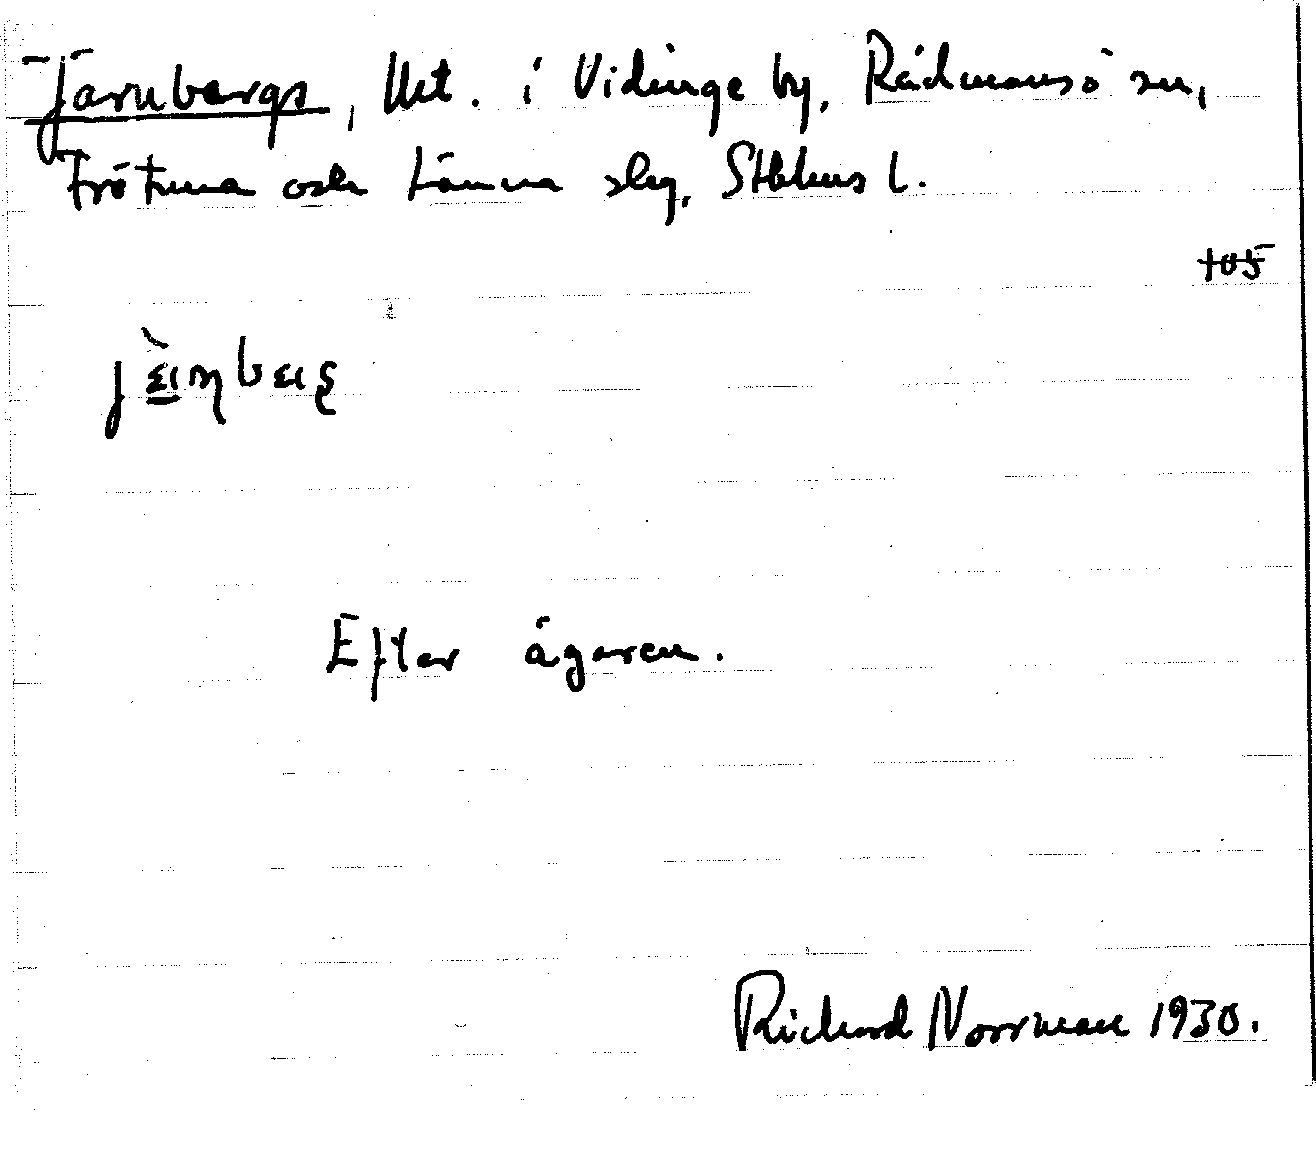 Järnbergs, lht. i Vidinge by, Rådmansö sn,
Frötuna och Länna slg, Sthlms l.
105
Efter ägaren.
Richard Norrman 1930.